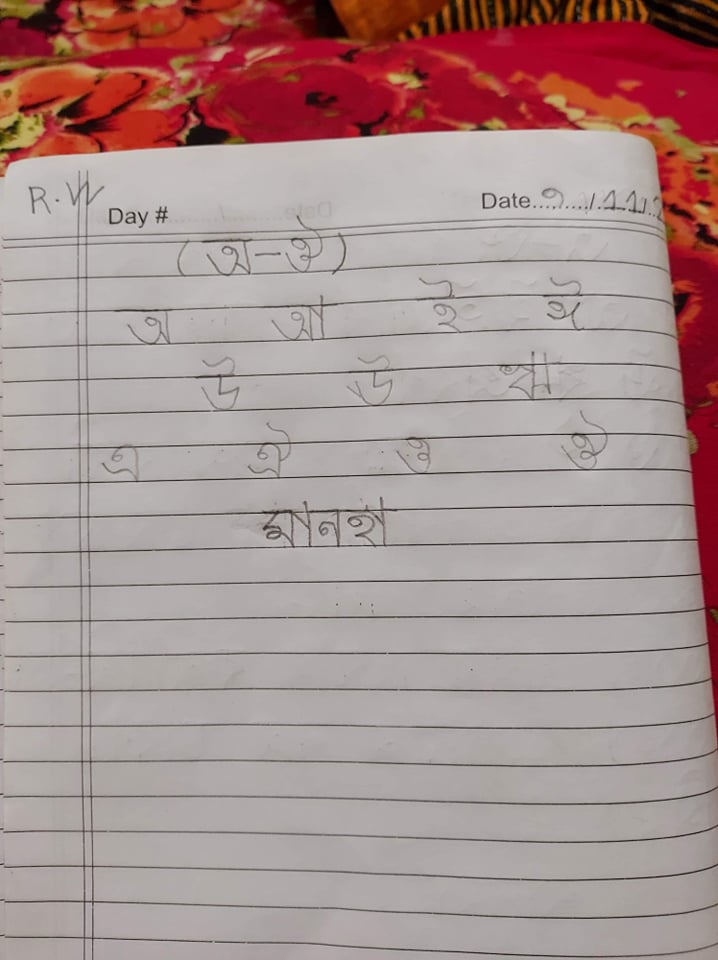 R.W
Day # Date 9/11/2
(অ-ঔ)
অ আ ই ঈ
উ ঊ ঋ
এ ঐ ও ঔ
মানহা